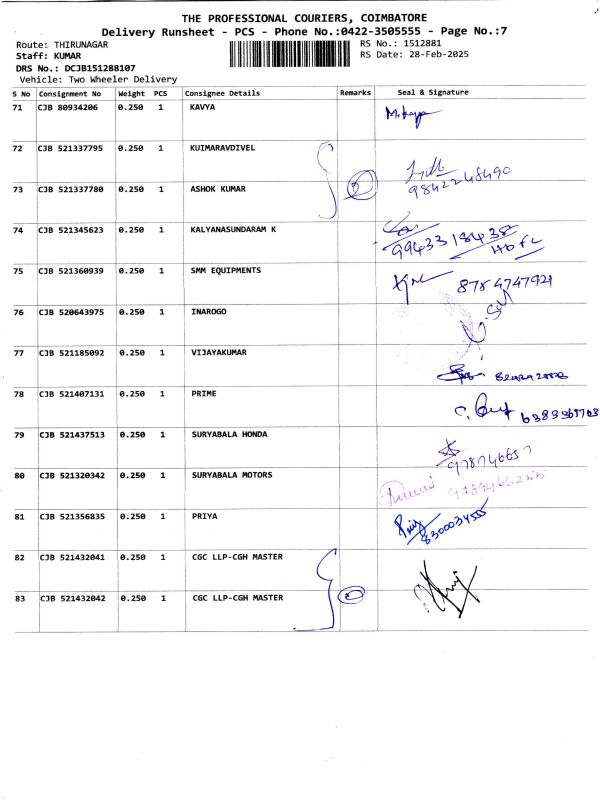 THE PROFESSIONAL COURIERS, COIMBATORE
Delivery Runsheet - PCS - Phone No.:0422-3505555 - Page No.:7
Route: THIRUNAGAR RS No.: 1512881
Staff: KUMAR RS Date: 28-Feb-2025
DRS No.: DCJB151288107
Vehicle: Two Wheeler Delivery
S No Consignment No Weight PCS Consignee Details Remarks Seal & Signature
71 CJB 80934206 0.250 1 KAVYA
72 CJB 521337795 0.250 1 KUIMARAVDIVEL
73 CJB 521337780 0.250 1 ASHOK KUMAR 2 9842248490
74 CJB 521345623 0.250 1 KALYANASUNDARAM K 9943318438
75 CJB 521360939 0.250 1 SMM EQUIPMENTS 8754747921
76 CJB 520643975 1 INAROGO
77 CJB 521185092 0.250 1 VIJAYAKUMAR
78 CJB 521407131 0.250 1 PRIME
79 CJB 521437513 0.250 1 SURYABALA HONDA
80 CJB 521320342 0.250 1 SURYABALA MOTORS
81 CJB 521356835 0.250 1 PRIYA 8300034555
82 CJB 521432041 0.250 1 CGC LLP-CGH MASTER
83 CJB 521432042 0.250 1 CGC LLP-CGH MASTER 2